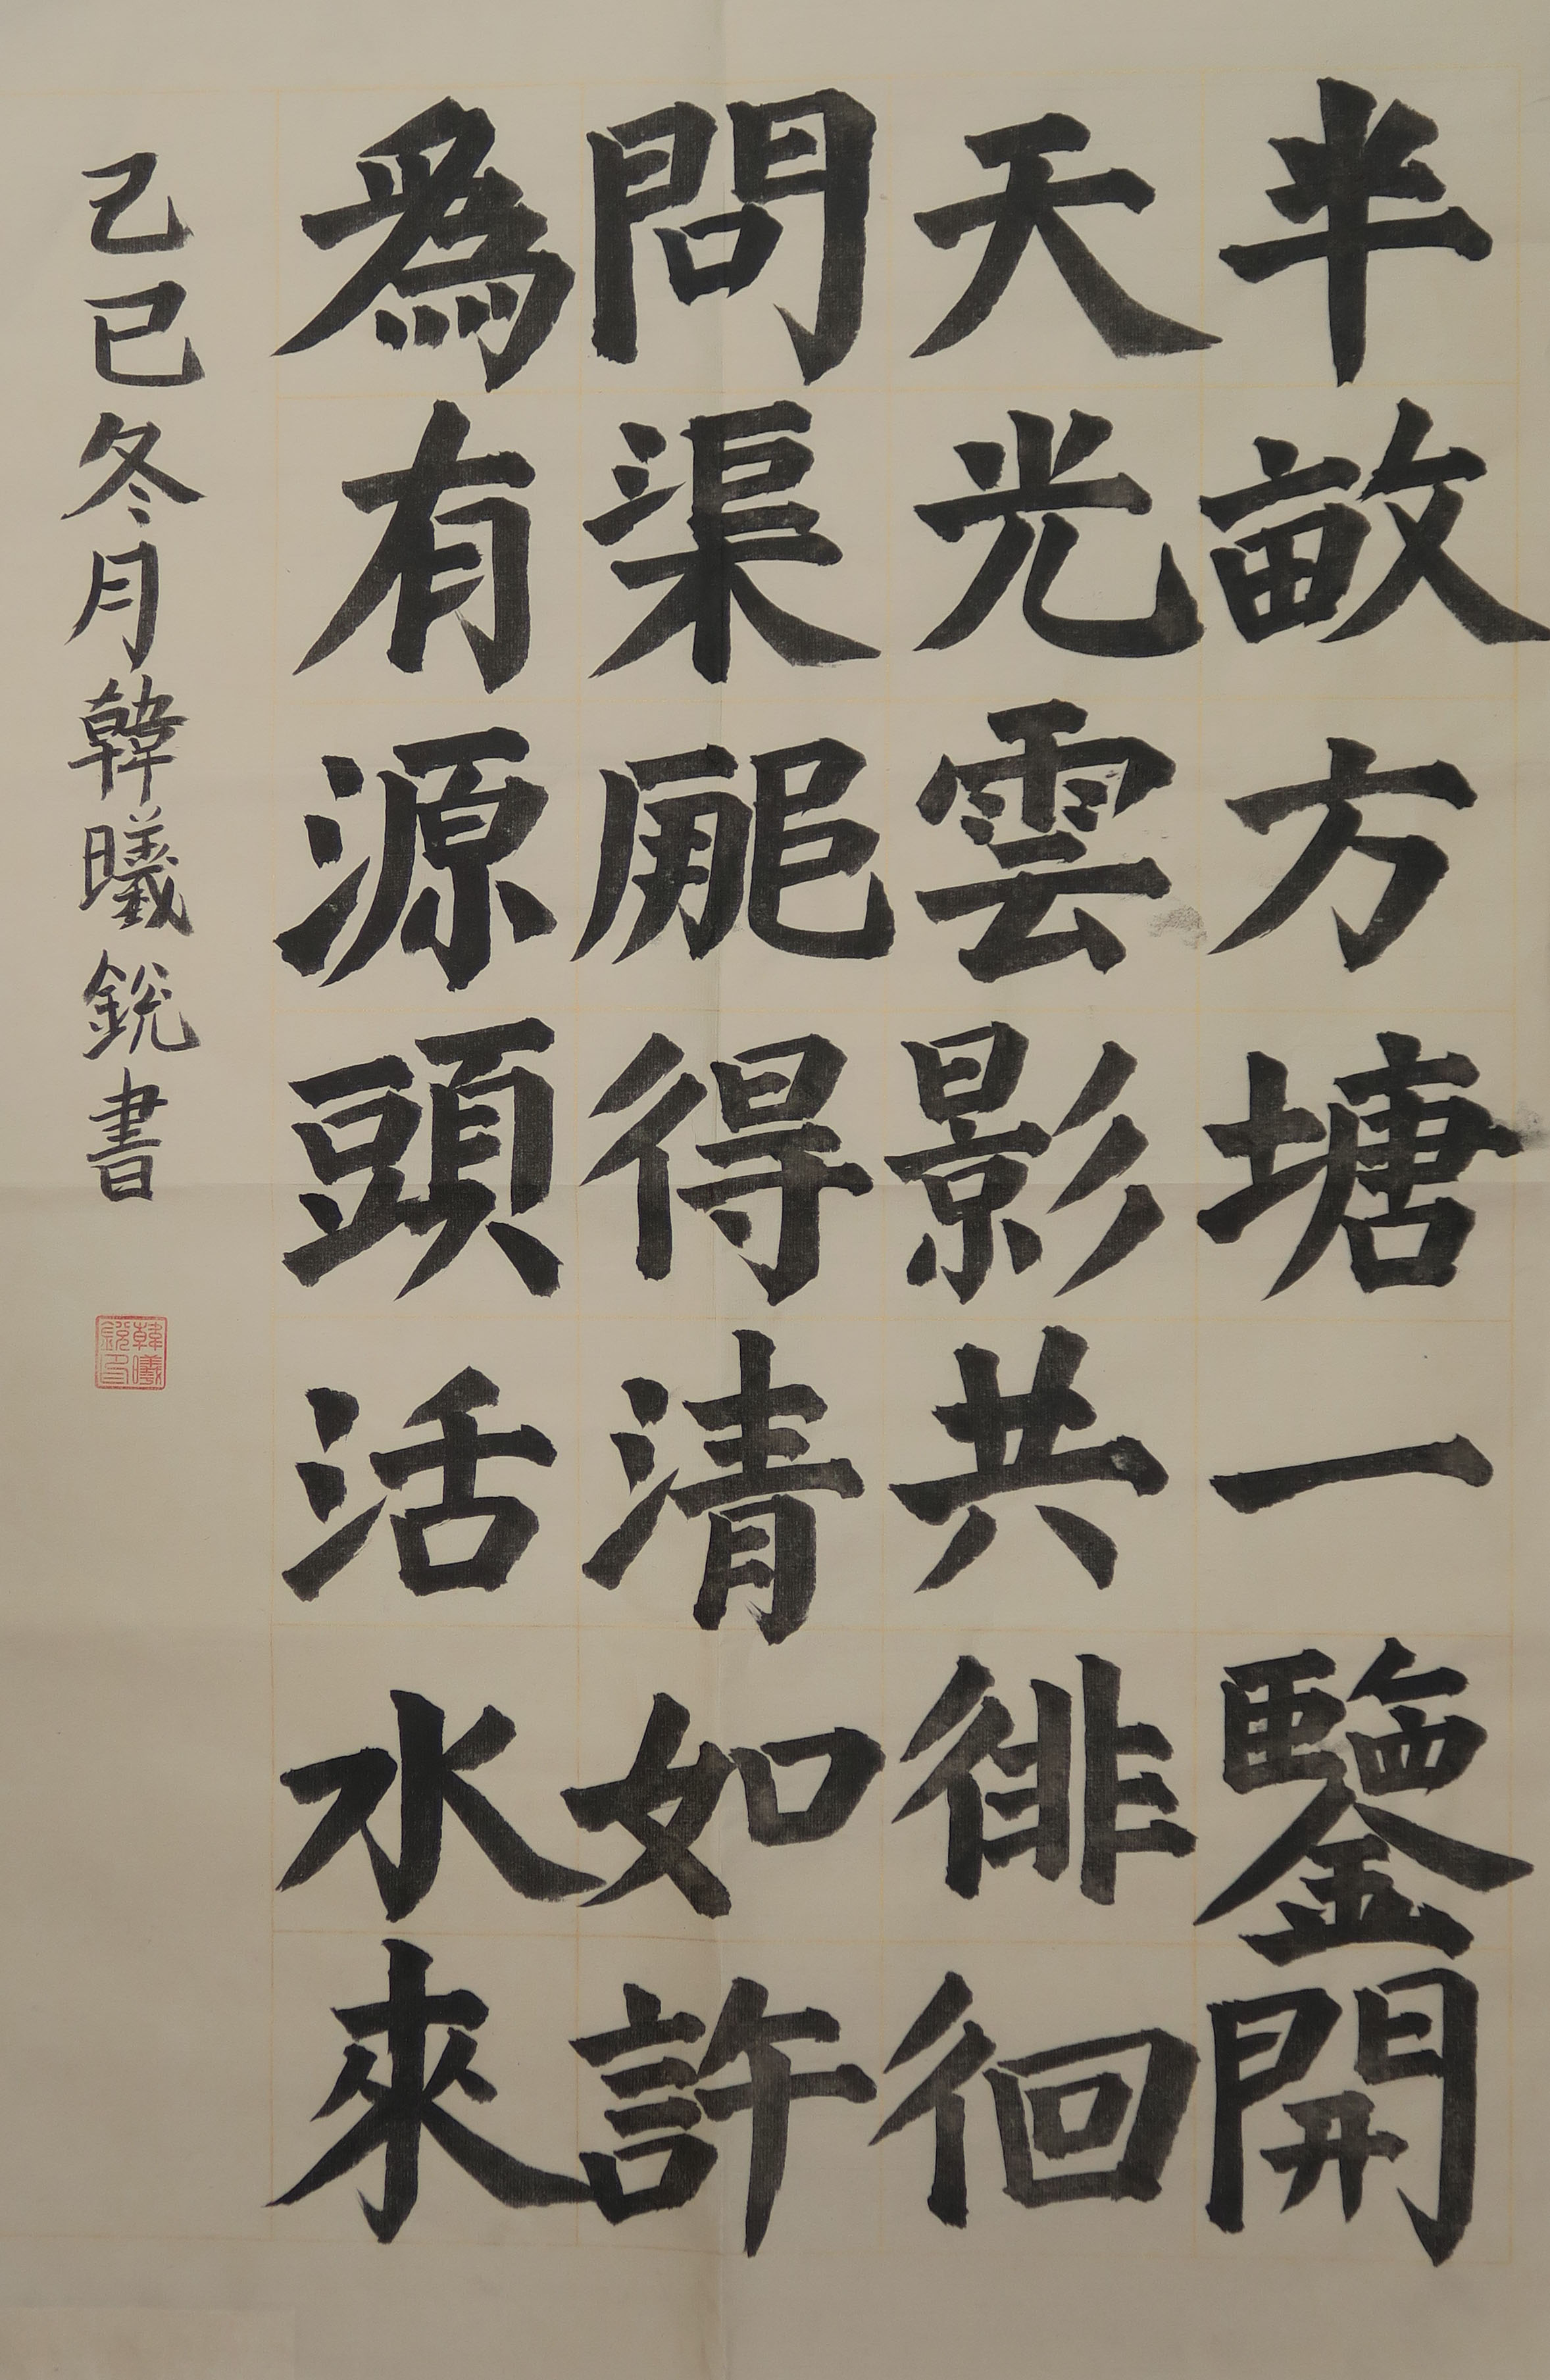 半畝方塘一鑒開
天光雲影共徘徊
問渠那得清如許
爲有源頭活水來
乙巳冬月韓曦銳書
韓曦銳印